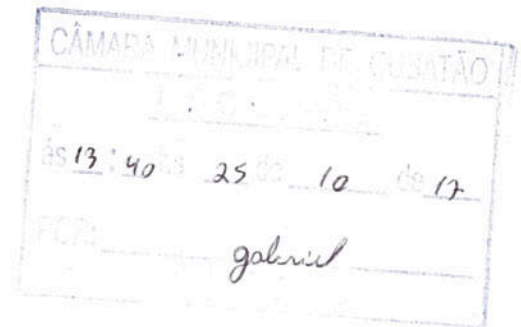 CÂMARA MUNICIPAL DE CUBATÃO
às 13:40 hs 25 de 10 de 17
POR: gabriel